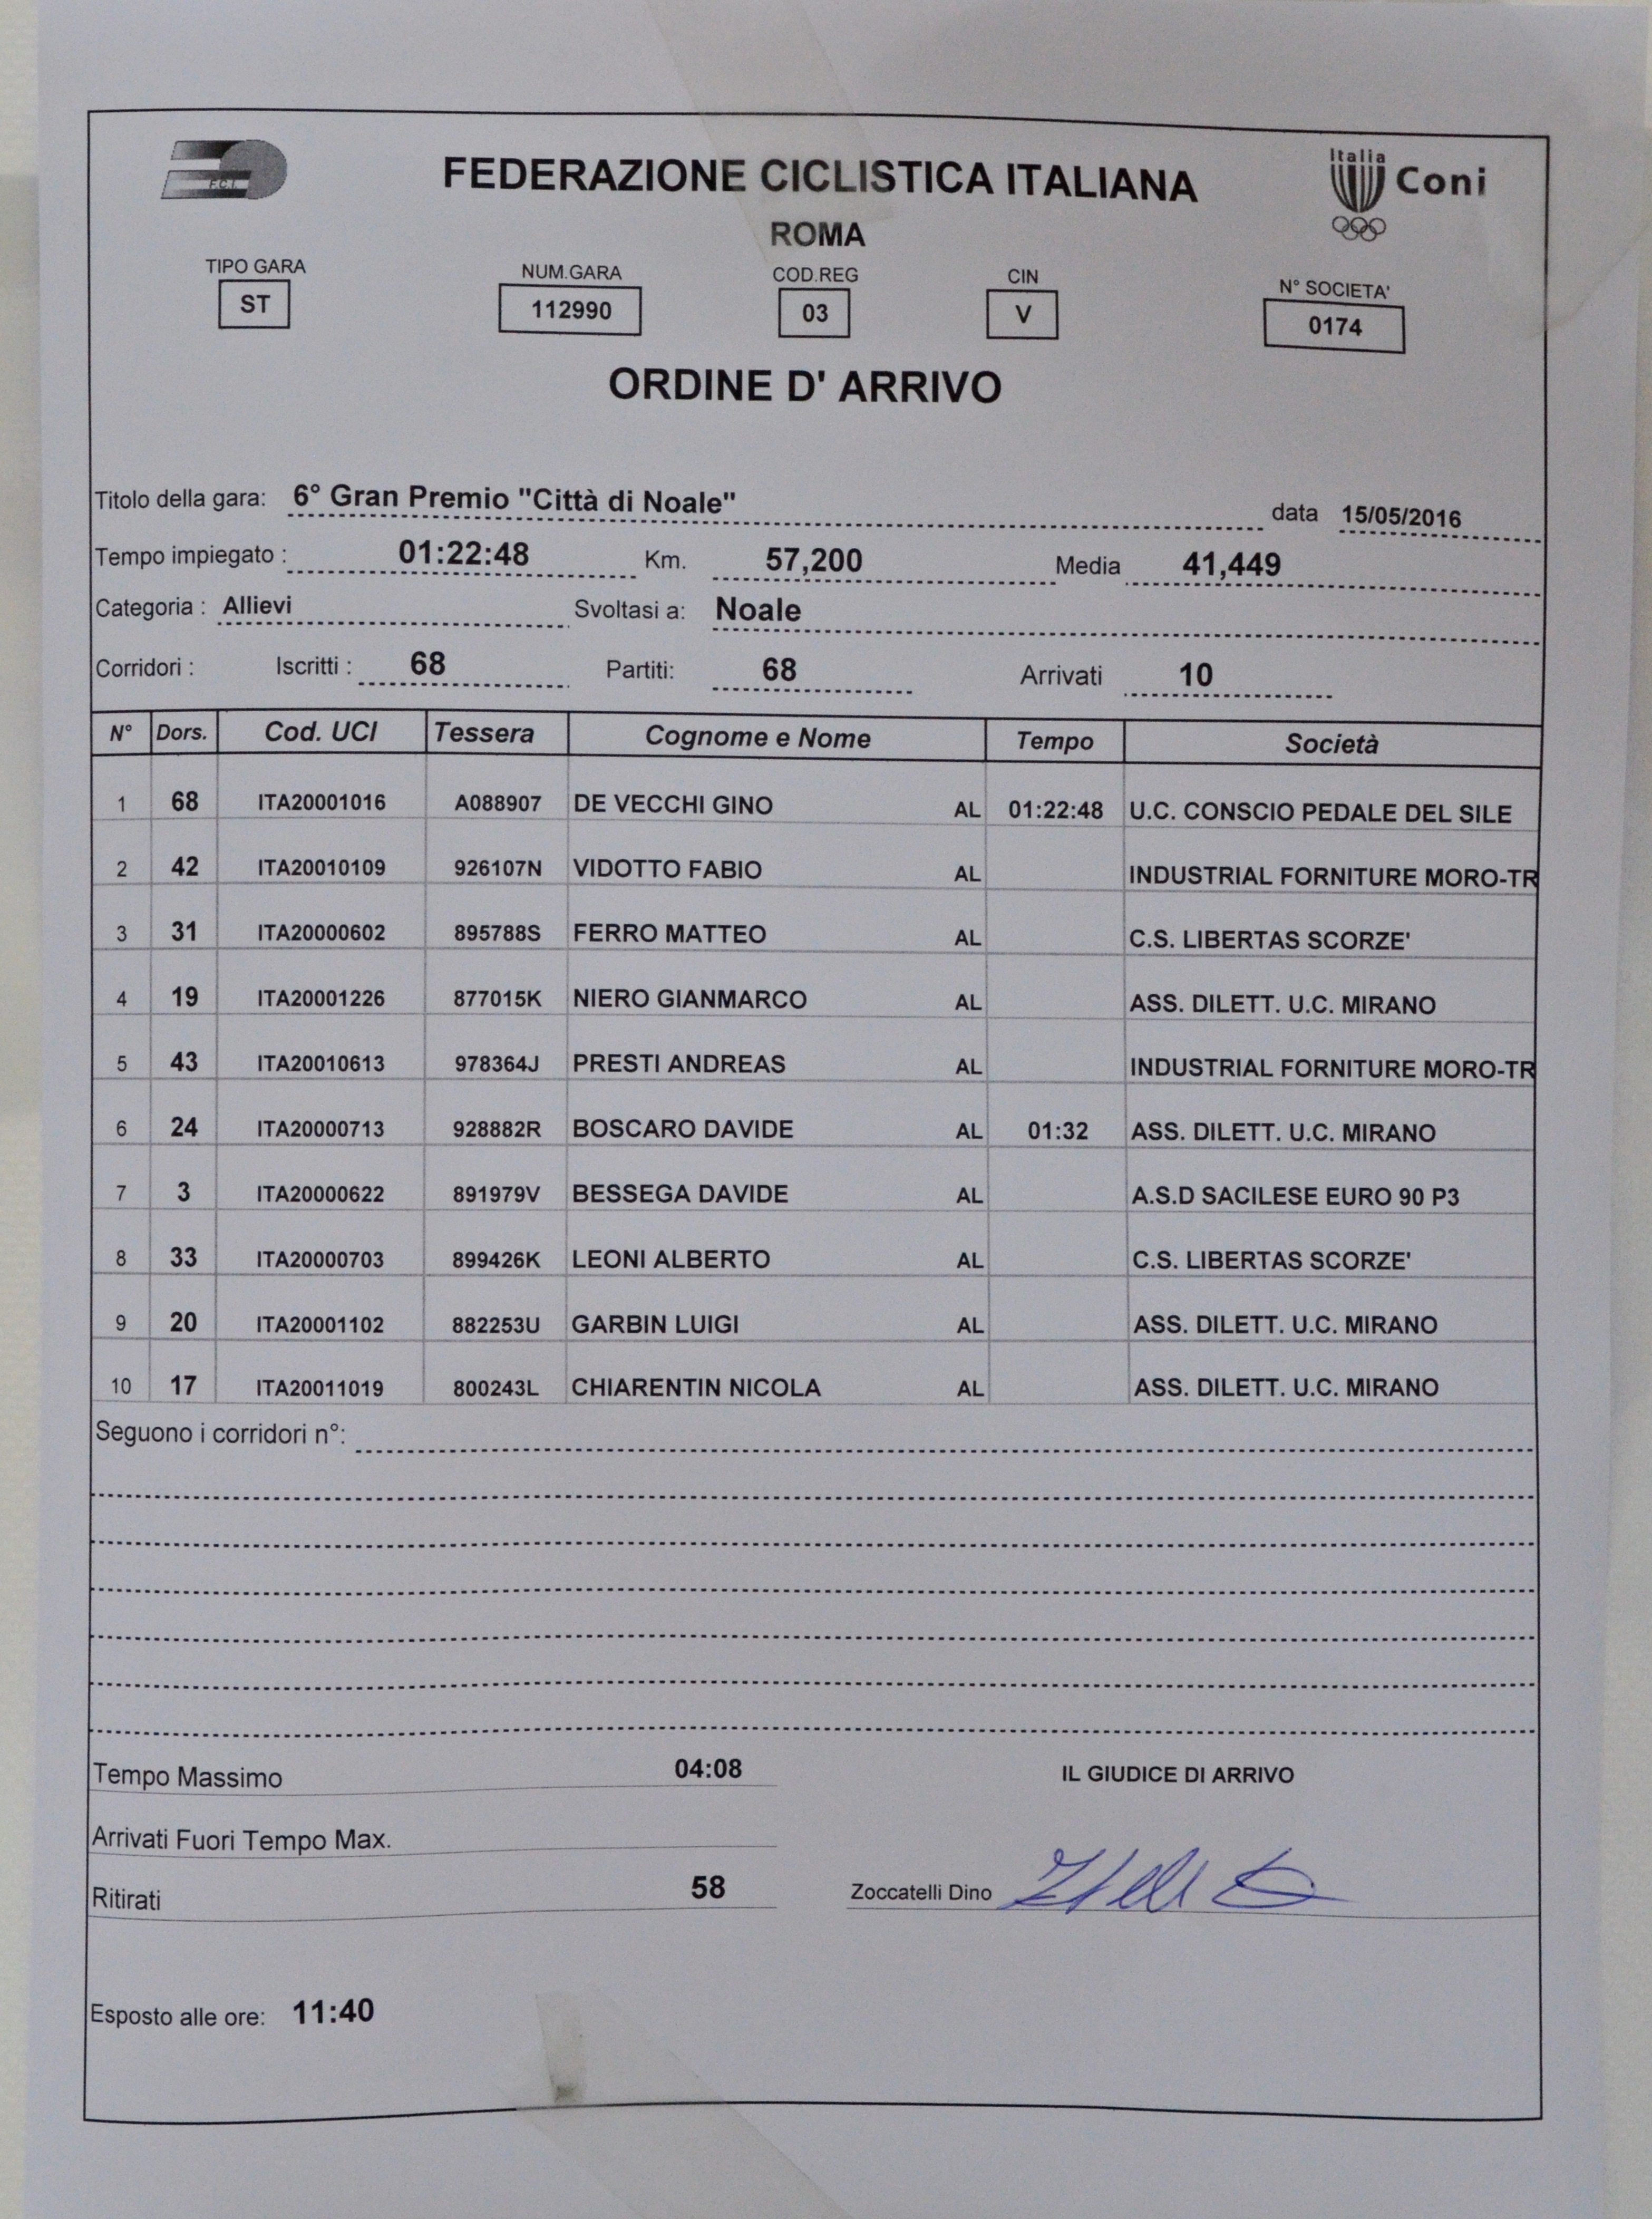 F.C.I.
FEDERAZIONE CICLISTICA ITALIANA
Italia
Coni
ROMA
TIPO GARA NUM.GARA COD.REG CIN N° SOCIETA'
ST 112990 03 V 0174
ORDINE D' ARRIVO
Titolo della gara: 6° Gran Premio "Città di Noale" data 15/05/2016
Tempo impiegato : 01:22:48 Km. 57,200 Media 41,449
Categoria : Allievi Svoltasi a: Noale
Corridori : Iscritti : 68 Partiti: 68 Arrivati 10
N° Dors. Cod. UCI Tessera Cognome e Nome Tempo Società
1 68 ITA20001016 A088907 DE VECCHI GINO AL 01:22:48 U.C. CONSCIO PEDALE DEL SILE
2 42 ITA20010109 926107N VIDOTTO FABIO AL INDUSTRIAL FORNITURE MORO-TR
3 31 ITA20000602 895788S FERRO MATTEO AL C.S. LIBERTAS SCORZE'
4 19 ITA20001226 877015K NIERO GIANMARCO AL ASS. DILETT. U.C. MIRANO
5 43 ITA20010613 978364J PRESTI ANDREAS AL INDUSTRIAL FORNITURE MORO-TR
6 24 ITA20000713 928882R BOSCARO DAVIDE AL 01:32 ASS. DILETT. U.C. MIRANO
7 3 ITA20000622 891979V BESSEGA DAVIDE AL A.S.D SACILESE EURO 90 P3
8 33 ITA20000703 899426K LEONI ALBERTO AL C.S. LIBERTAS SCORZE'
9 20 ITA20001102 882253U GARBIN LUIGI AL ASS. DILETT. U.C. MIRANO
10 17 ITA20011019 800243L CHIARENTIN NICOLA AL ASS. DILETT. U.C. MIRANO
Seguono i corridori n°:
Tempo Massimo 04:08 IL GIUDICE DI ARRIVO
Arrivati Fuori Tempo Max.
Ritirati 58 Zoccatelli Dino
Esposto alle ore: 11:40